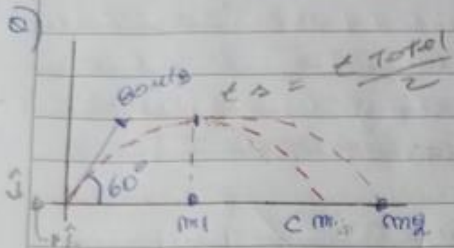 Q)
80m/s
ts = t Total / 2
60°
ĵ
î
m1
C m
m2